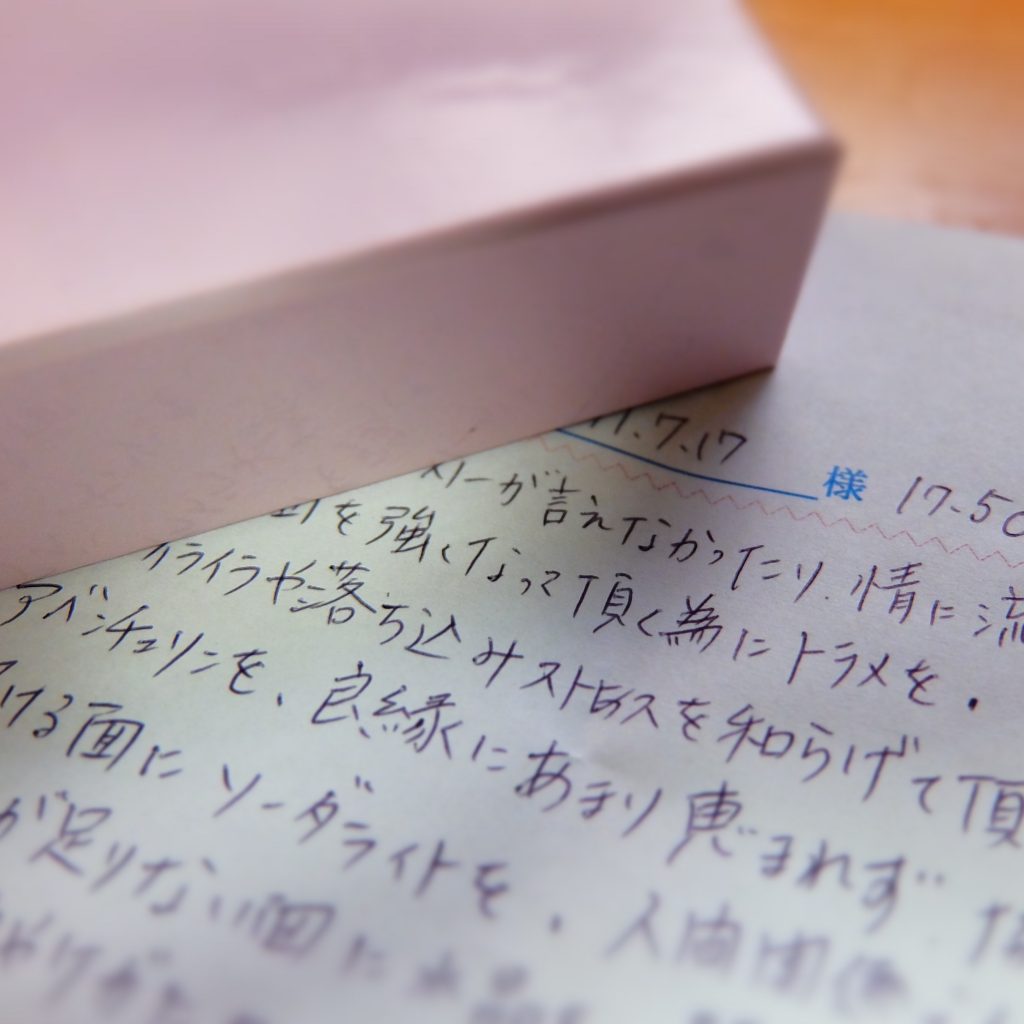 7.17
様 17.50
リーが言えなかったり、情に流
を強くなって頂く為にトラメを、
イライラや落ち込みストレスを和らげて頂
アベンチュリンを、良縁にあまり恵まれず
ける面にソーダライトを、人間関係
が足りない面に水晶